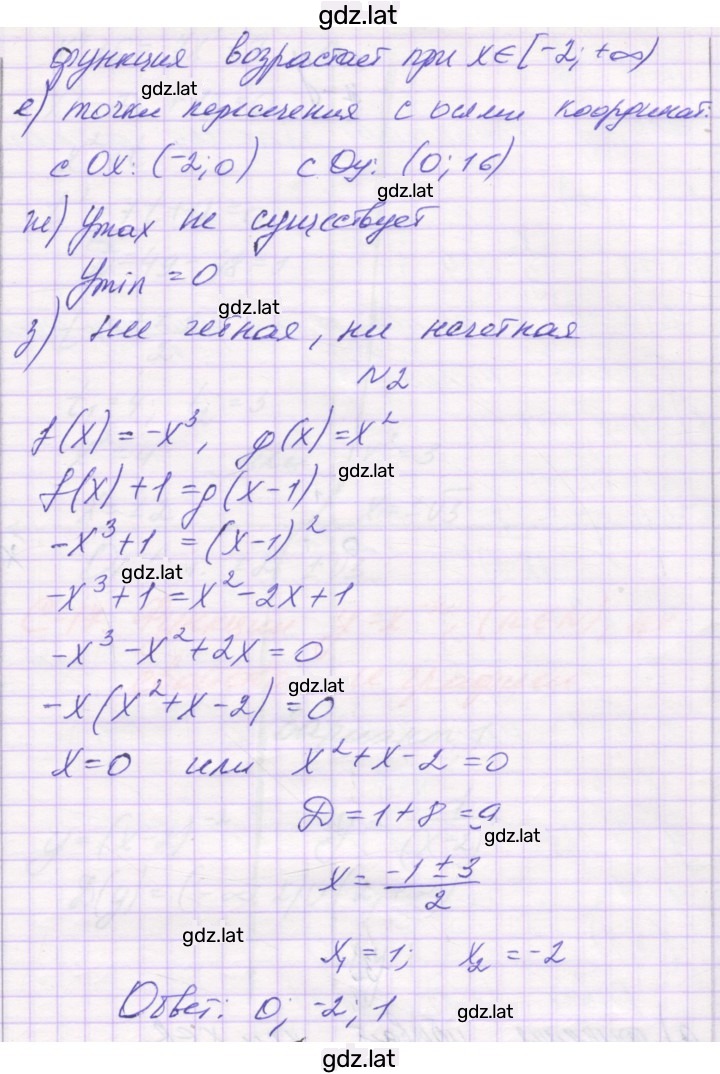 gdz.lat
функция возрастает при x∈[-2; +∞)
gdz.lat
е) точки пересечения с осями координат:
с Ox: (-2; 0) с Oy: (0; 16)
gdz.lat
ж) ymax не существует
ymin = 0
gdz.lat
з) ни четная, ни нечетная
N2
f(x) = -x³, g(x) = x²
gdz.lat
f(x) + 1 = g(x-1)
-x³+1 = (x-1)²
gdz.lat
-x³+1 = x²-2x+1
-x³-x²+2x=0
gdz.lat
-x(x²+x-2)=0
x=0 или x²+x-2=0
D=1+8=9
gdz.lat
x = (-1±3)/2
gdz.lat
x₁=1; x₂=-2
Ответ: 0; -2; 1
gdz.lat
gdz.lat